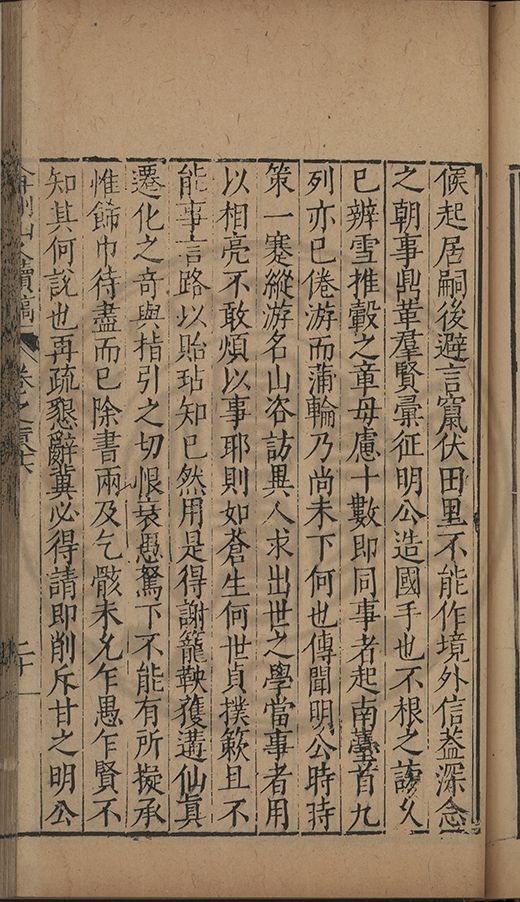 候起居嗣後避言竄伏田里不能作境外信葢深念
之朝事鼎革羣賢彙征明公造國手也不根之謗乆
已辨雪推轂之章毋慮十數即同事者起南臺首九
列亦已倦游而蒲輪乃尚未下何也傳聞明公時時
策一蹇縱游名山咨訪異人求出世之學當事者用
以相亮不敢煩以事耶則如蒼生何世貞撲簌且不
能事言路以貽玷知已然用是得謝籠鞅獲遘仙眞
遷化之奇與指引之切恨衰愚駑下不能有所擬承
惟飾巾待盡而已除書兩及乞骸未允乍愚乍賢不
知其何說也再疏懇辭冀必得請即削斥甘之明公
弇州山人續稿 卷之 二十